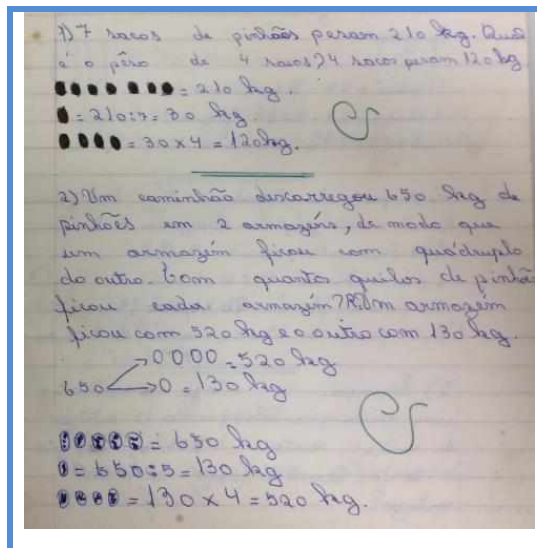 1) 7 sacos de pinhões pesam 210 kg. Qual
é o pêso de 4 sacos? 4 sacos pesam 120 kg
= 210 kg.
= 210:7 = 30 kg.
= 30 x 4 = 120 kg.
2) Um caminhão descarregou 650 kg de
pinhões em 2 armazéns, de modo que
um armazém ficou com quádruplo
do outro. Com quantos quilos de pinhão
ficou cada armazém? R. Um armazém
ficou com 520 kg e o outro com 130 kg.
0000 = 520 kg
650 0 = 130 kg
= 650 kg
= 650:5 = 130 kg
= 130 x 4 = 520 kg.